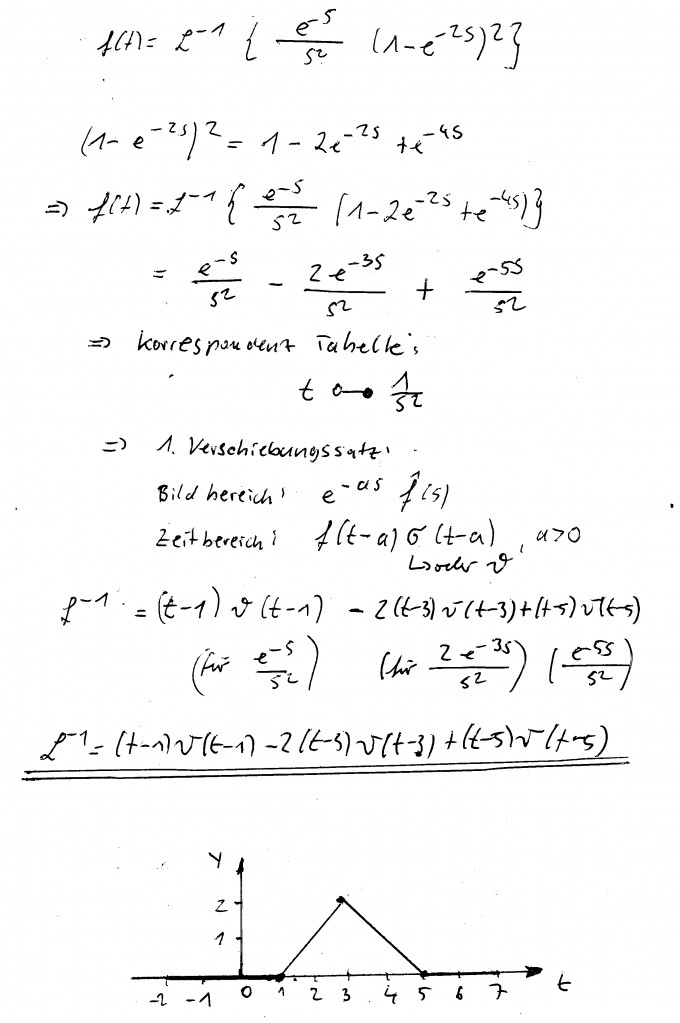 f(t) = ℒ⁻¹ { e^-s / s² (1-e^-2s)² }
(1-e^-2s)² = 1 - 2e^-2s + e^-4s
⇒ f(t) = ℒ⁻¹ { e^-s / s² (1-2e^-2s + e^-4s) }
= e^-s / s² - 2e^-3s / s² + e^-5s / s²
⇒ Korrespondenz Tabelle:
t ○–● 1/s²
⇒ 1. Verschiebungssatz:
Bildbereich: e^-as f̂(s)
Zeitbereich: f(t-a) σ(t-a), a>0
↳ oder ϑ
ℒ⁻¹ = (t-1) ϑ(t-1) - 2(t-3) ϑ(t-3) + (t-5) ϑ(t-5)
(für e^-s / s²) (für 2e^-3s / s²) (e^-5s / s²)
ℒ⁻¹ = (t-1) ϑ(t-1) - 2(t-3) ϑ(t-3) + (t-5) ϑ(t-5)
y
2
1
-2 -1 0 1 2 3 4 5 6 7 t